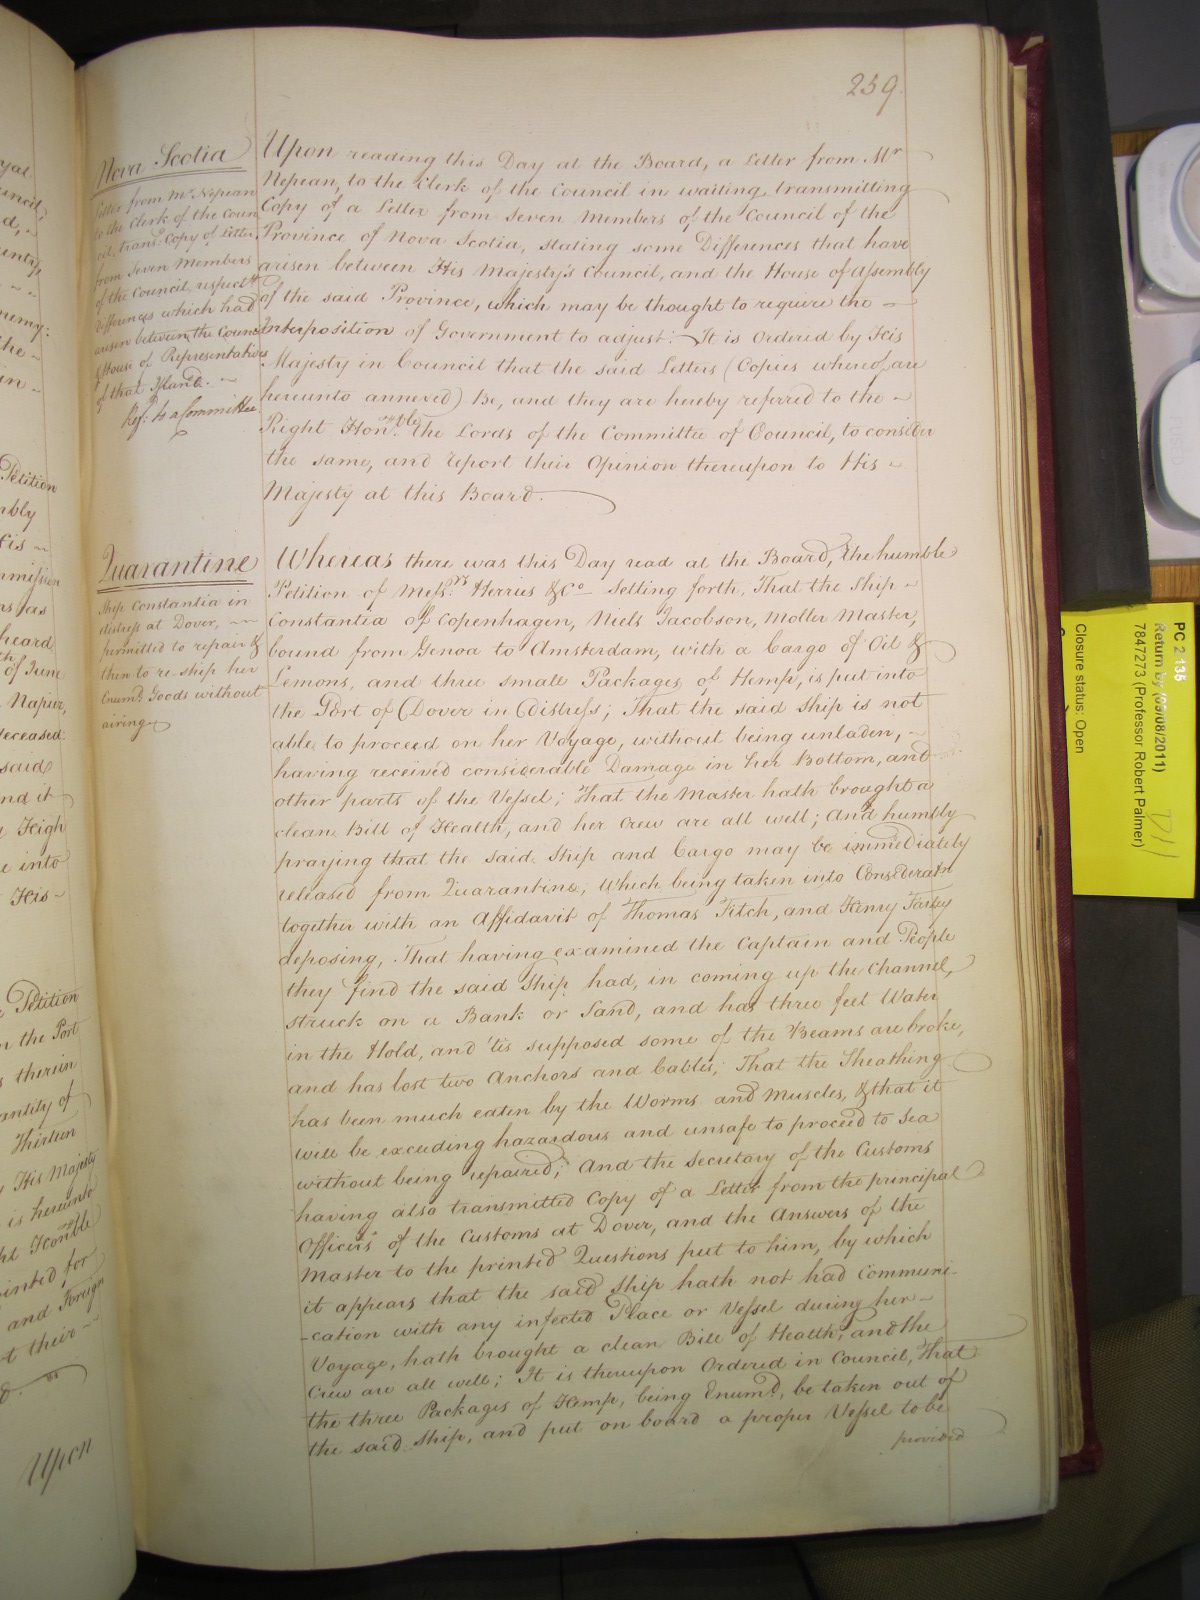 259.
Nova Scotia
Letter from Mr. Nepean
to the Clerk of the Coun
cil, trans.g Copy of Letter
from Seven Members
of the Council, respect.g
differences which had
arisen between the Council
& House of Representatives
of that Island. ~
Ref.d to a Committee
Upon reading this Day at the Board, a Letter from Mr
Nepean, to the Clerk of the Council in waiting, transmitting
Copy of a Letter from Seven Members of the Council of the
Province of Nova Scotia, stating some Differences that have
arisen between His Majesty's Council, and the House of Assembly
of the said Province, which may be thought to require the ~
Interposition of Government to adjust: It is Ordered by His
Majesty in Council that the said Letters (Copies whereof are
hereunto annexed) Be, and they are hereby referred to the ~
Right Hon.ble the Lords of the Committee of Council, to consider
the same, and report their Opinion thereupon to His ~
Majesty at this Board.
Quarantine
Ship Constantia in
distress at Dover, ~
permitted to repair &
then to re-ship her
Enum.d Goods without
airing
Whereas there was this Day read at the Board, the humble
Petition of Mess.rs Herries & Co Setting forth, That the Ship ~
Constantia of Copenhagen, Niels Jacobson, Moller Master,
bound from Genoa to Amsterdam, with a Cargo of Oil &
Lemons, and three small Packages of Hemp, is put into
the Port of Dover in Distress; That the said Ship is not
able to proceed on her Voyage, without being unladen, ~
having received considerable Damage in her Bottom, and
other parts of the Vessel; That the Master hath brought a
clean Bill of Health, and her Crew are all well; And humbly
praying that the said Ship and Cargo may be immediately
released from Quarantine; Which being taken into Considerat.n
together with an Affidavit of Thomas Fitch, and Henry Farley
deposing, That having examined the Captain and People
they find the said Ship had, in coming up the Channel,
struck on a Bank or Sand, and has three feet Water
in the Hold, and 'tis supposed some of the Beams are broke,
and has lost two Anchors and Cables; That the Sheathing
has been much eaten by the Worms and Muscles, & that it
will be exceeding hazardous and unsafe to proceed to Sea
without being repaired; And the Secretary of the Customs
having also transmitted Copy of a Letter from the principal
Officers of the Customs at Dover, and the Answers of the
Master to the printed Questions put to him, by which
it appears that the said Ship hath not had Communi-
-cation with any infected Place or Vessel during her ~
Voyage, hath brought a clean Bill of Health, and the
Crew are all well; It is thereupon Ordered in Council, That
the three Packages of Hemp, being Enum.d, be taken out of
the said Ship, and put on board a proper Vessel to be
provided
Petition
deceased
said
nd it
High
e into
His ~
Petition
n the Port
therein
antity of
Thirteen
His Majesty
is hereunto
ht Hon.ble
ointed for
and Foreign
t their ~
Upon
PC 2 135
Return by (05/08/2011)
7847273 (Professor Robert Palmer)
Closure status: Open